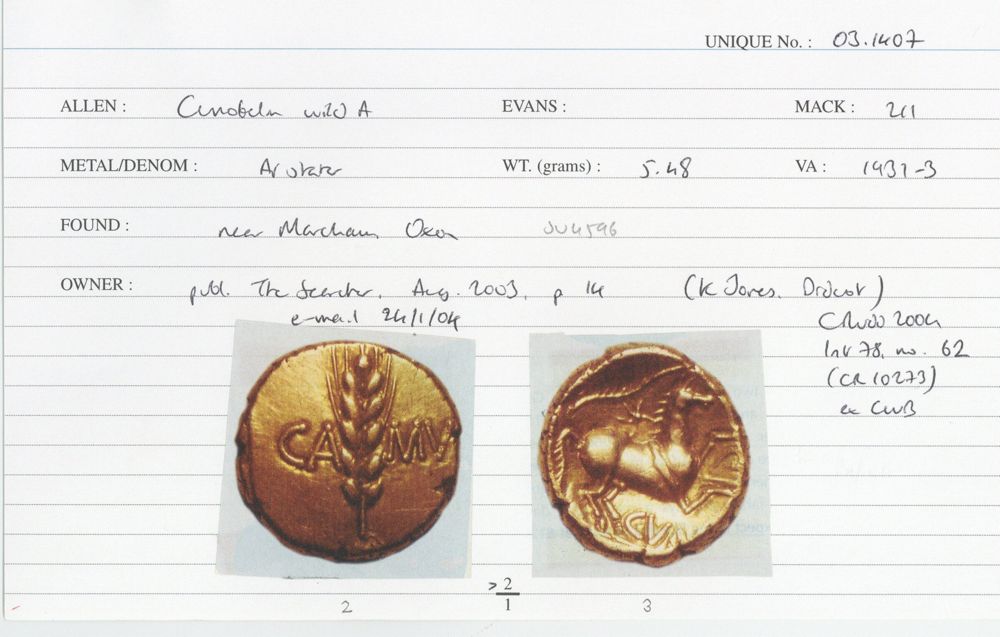 UNIQUE No. : 03.1407
ALLEN : Cunobelin wild A EVANS : MACK : 211
METAL/DENOM : AV stater WT. (grams) : 5.48 VA : 1931-3
FOUND : near Marcham, Oxon SU4596
OWNER : publ. The Searcher, Aug. 2003, p 14 (K Jones, Didcot)
e-mail 24/1/04
2004
78, no. 62
(CR 10273)
ex
CA MV
CVN
> 2
1
2
3